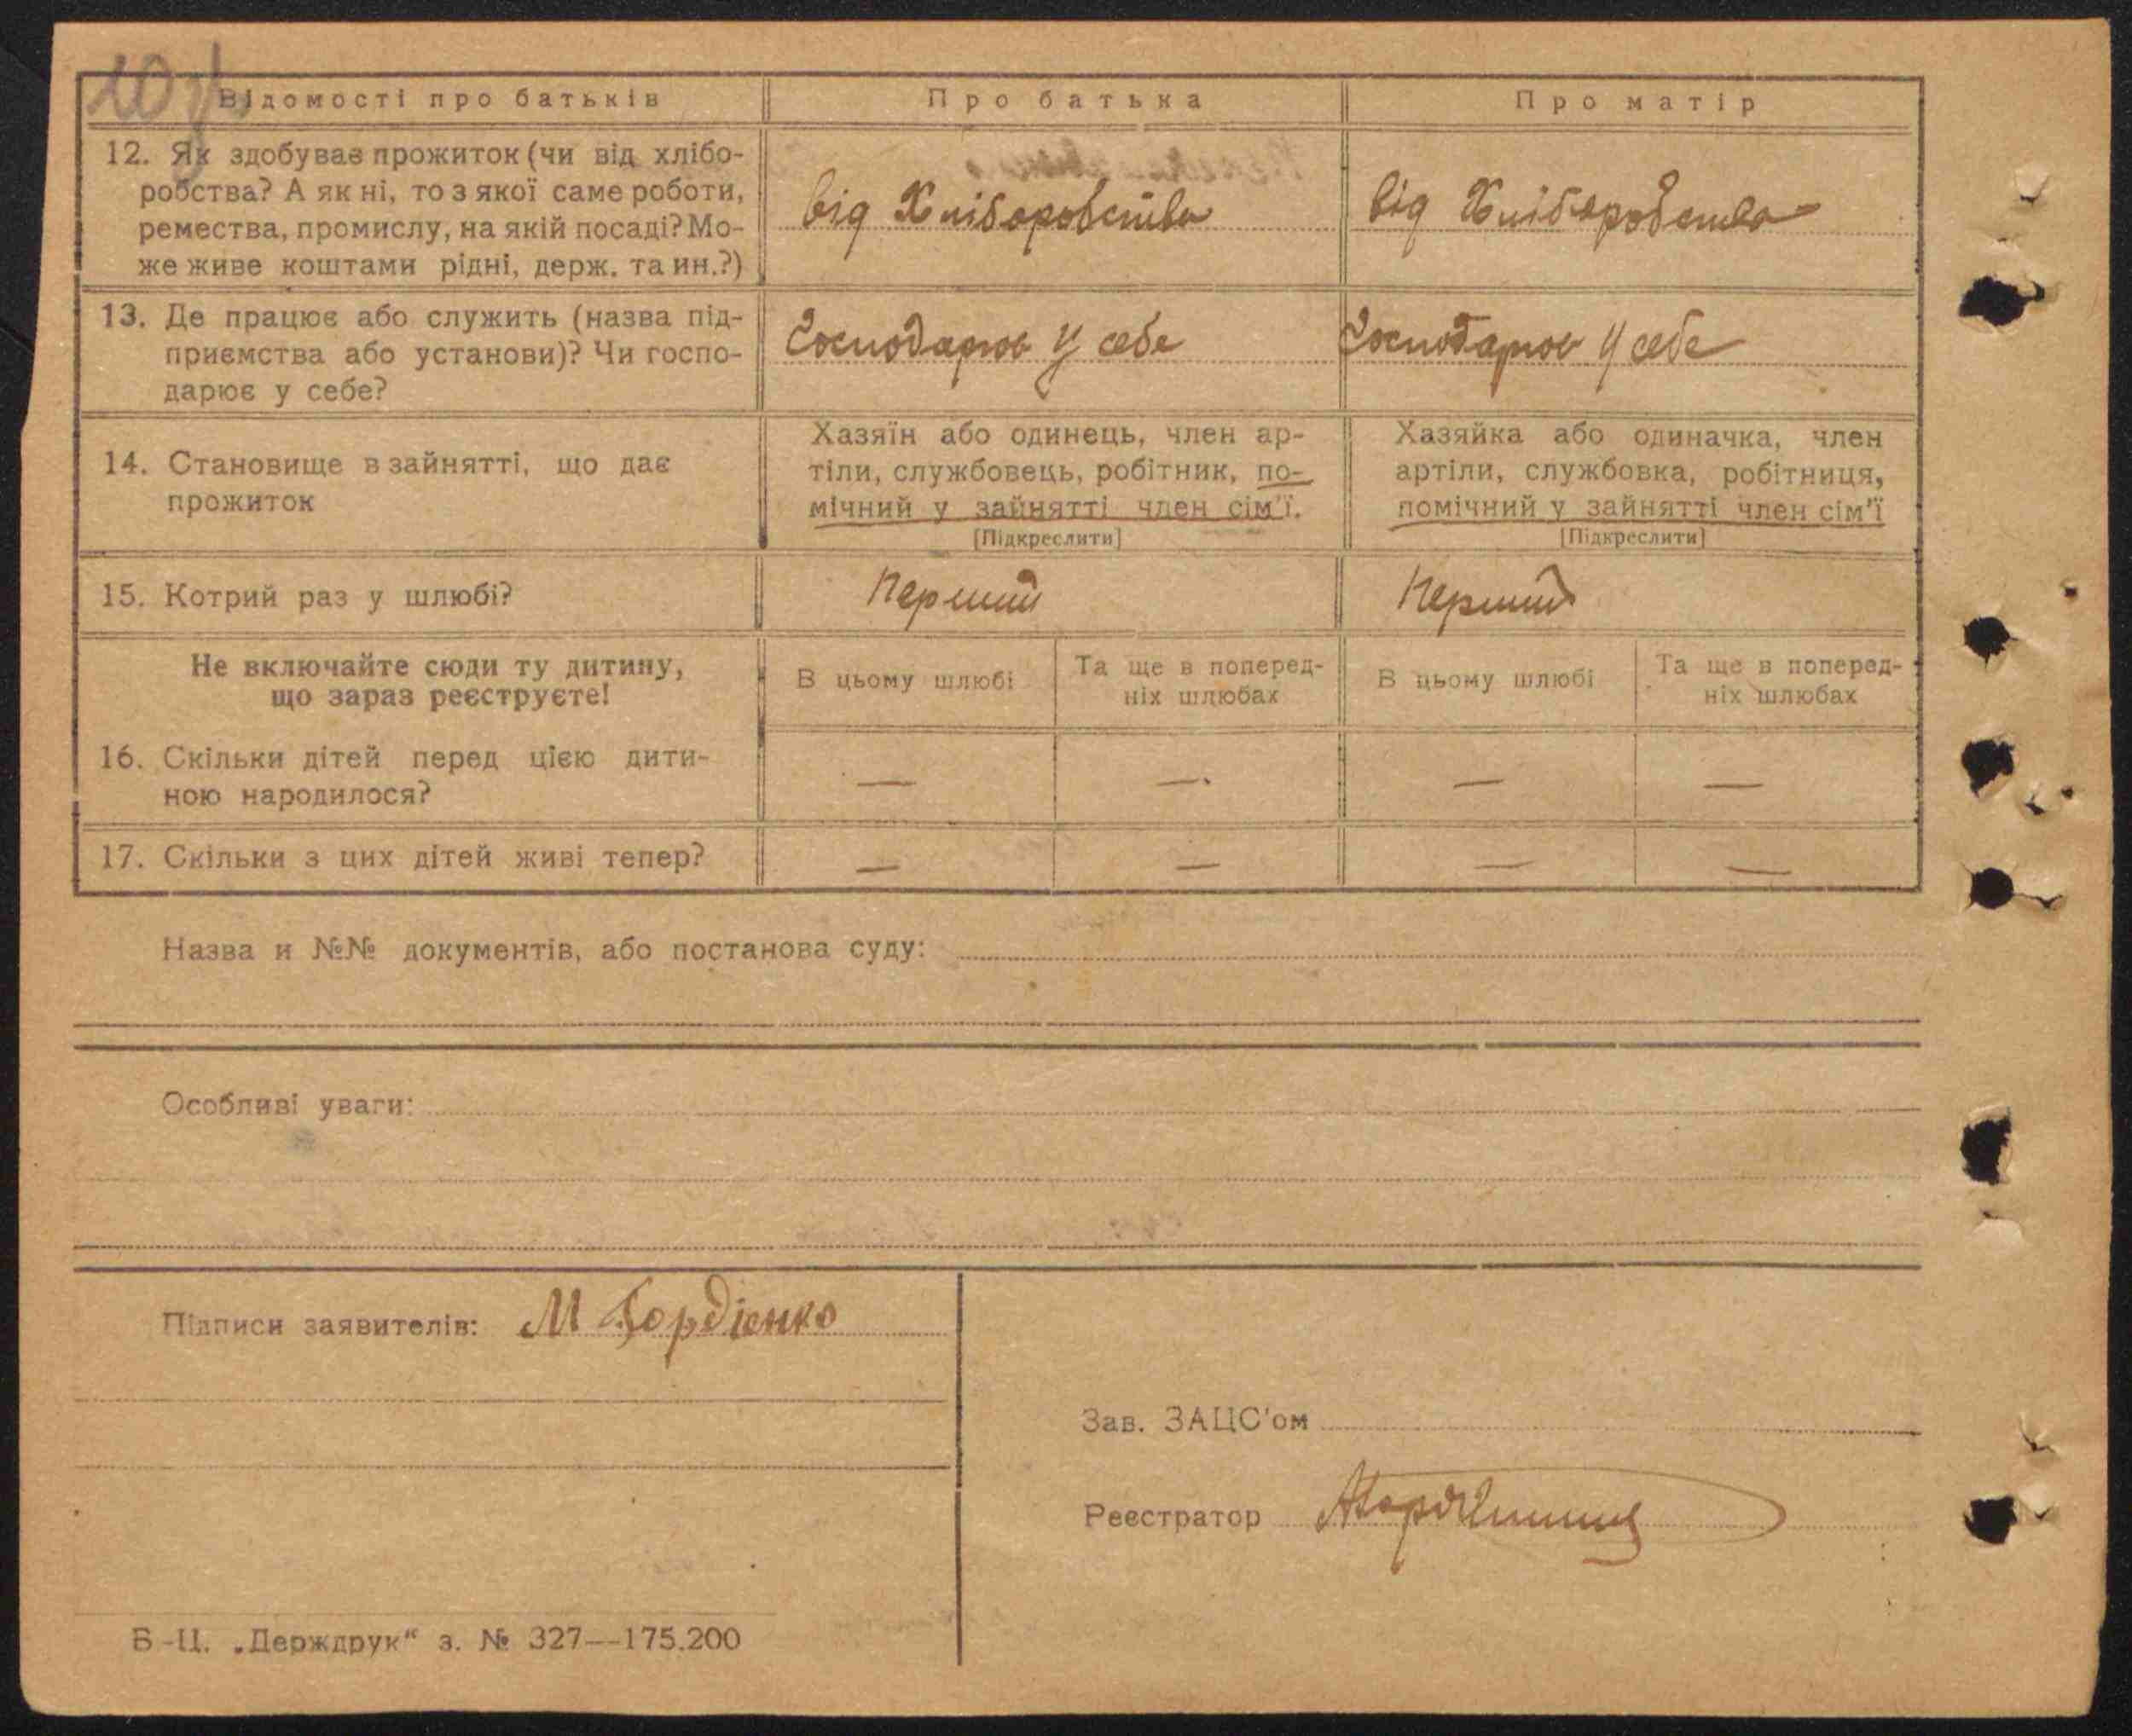 Відомості про батьків Про батька Про матір
12. Як здобуває прожиток (чи від хлібо-
робства? А як ні, то з якої саме роботи,
ремества, промислу, на якій посаді? Мо-
же живе коштами рідні, держ. та ин.?)
від Хліборобства від Хліборобства
13. Де працює або служить (назва під-
приємства або установи)? Чи госпо-
дарює у себе?
Господарює у себе Господарює у себе
14. Становище в зайнятті, що дає
прожиток
Хазяїн або одинець, член ар-
тіли, службовець, робітник, по-
мічний у зайнятті член сім'ї.
[Підкреслити]
Хазяйка або одиначка, член
артіли, службовка, робітниця,
помічний у зайнятті член сім'ї
[Підкреслити]
15. Котрий раз у шлюбі? Перший Перший
Не включайте сюди ту дитину,
що зараз реєструєте!
В цьому шлюбі
Та ще в поперед-
ніх шлюбах
В цьому шлюбі
Та ще в поперед-
ніх шлюбах
16. Скільки дітей перед цією дити-
ною народилося?
— — — —
17. Скільки з цих дітей живі тепер?
— — — —
Назва и №№ документів, або постанова суду:
Особливі уваги:
Підписи заявителів: М Гордієнко
Зав. ЗАЦС'ом
Реєстратор
Б-Ц. „Держдрук“ з. № 327—175.200